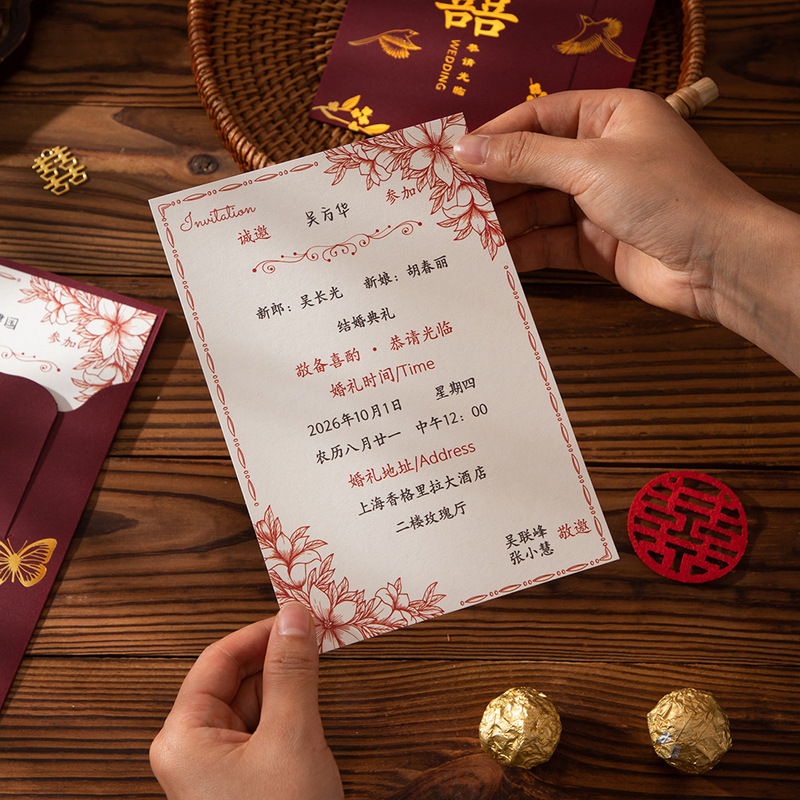 囍
恭请光临
WEDDING
Invitation
诚邀 吴方华 参加
新郎：吴长光 新娘：胡春丽
结婚典礼
敬备喜酌 · 恭请光临
婚礼时间/Time
2026年10月1日 星期四
农历八月廿一 中午12：00
婚礼地址/Address
上海香格里拉大酒店
二楼玫瑰厅
吴联峰 敬邀
张小慧
建国
参加
囍
囍